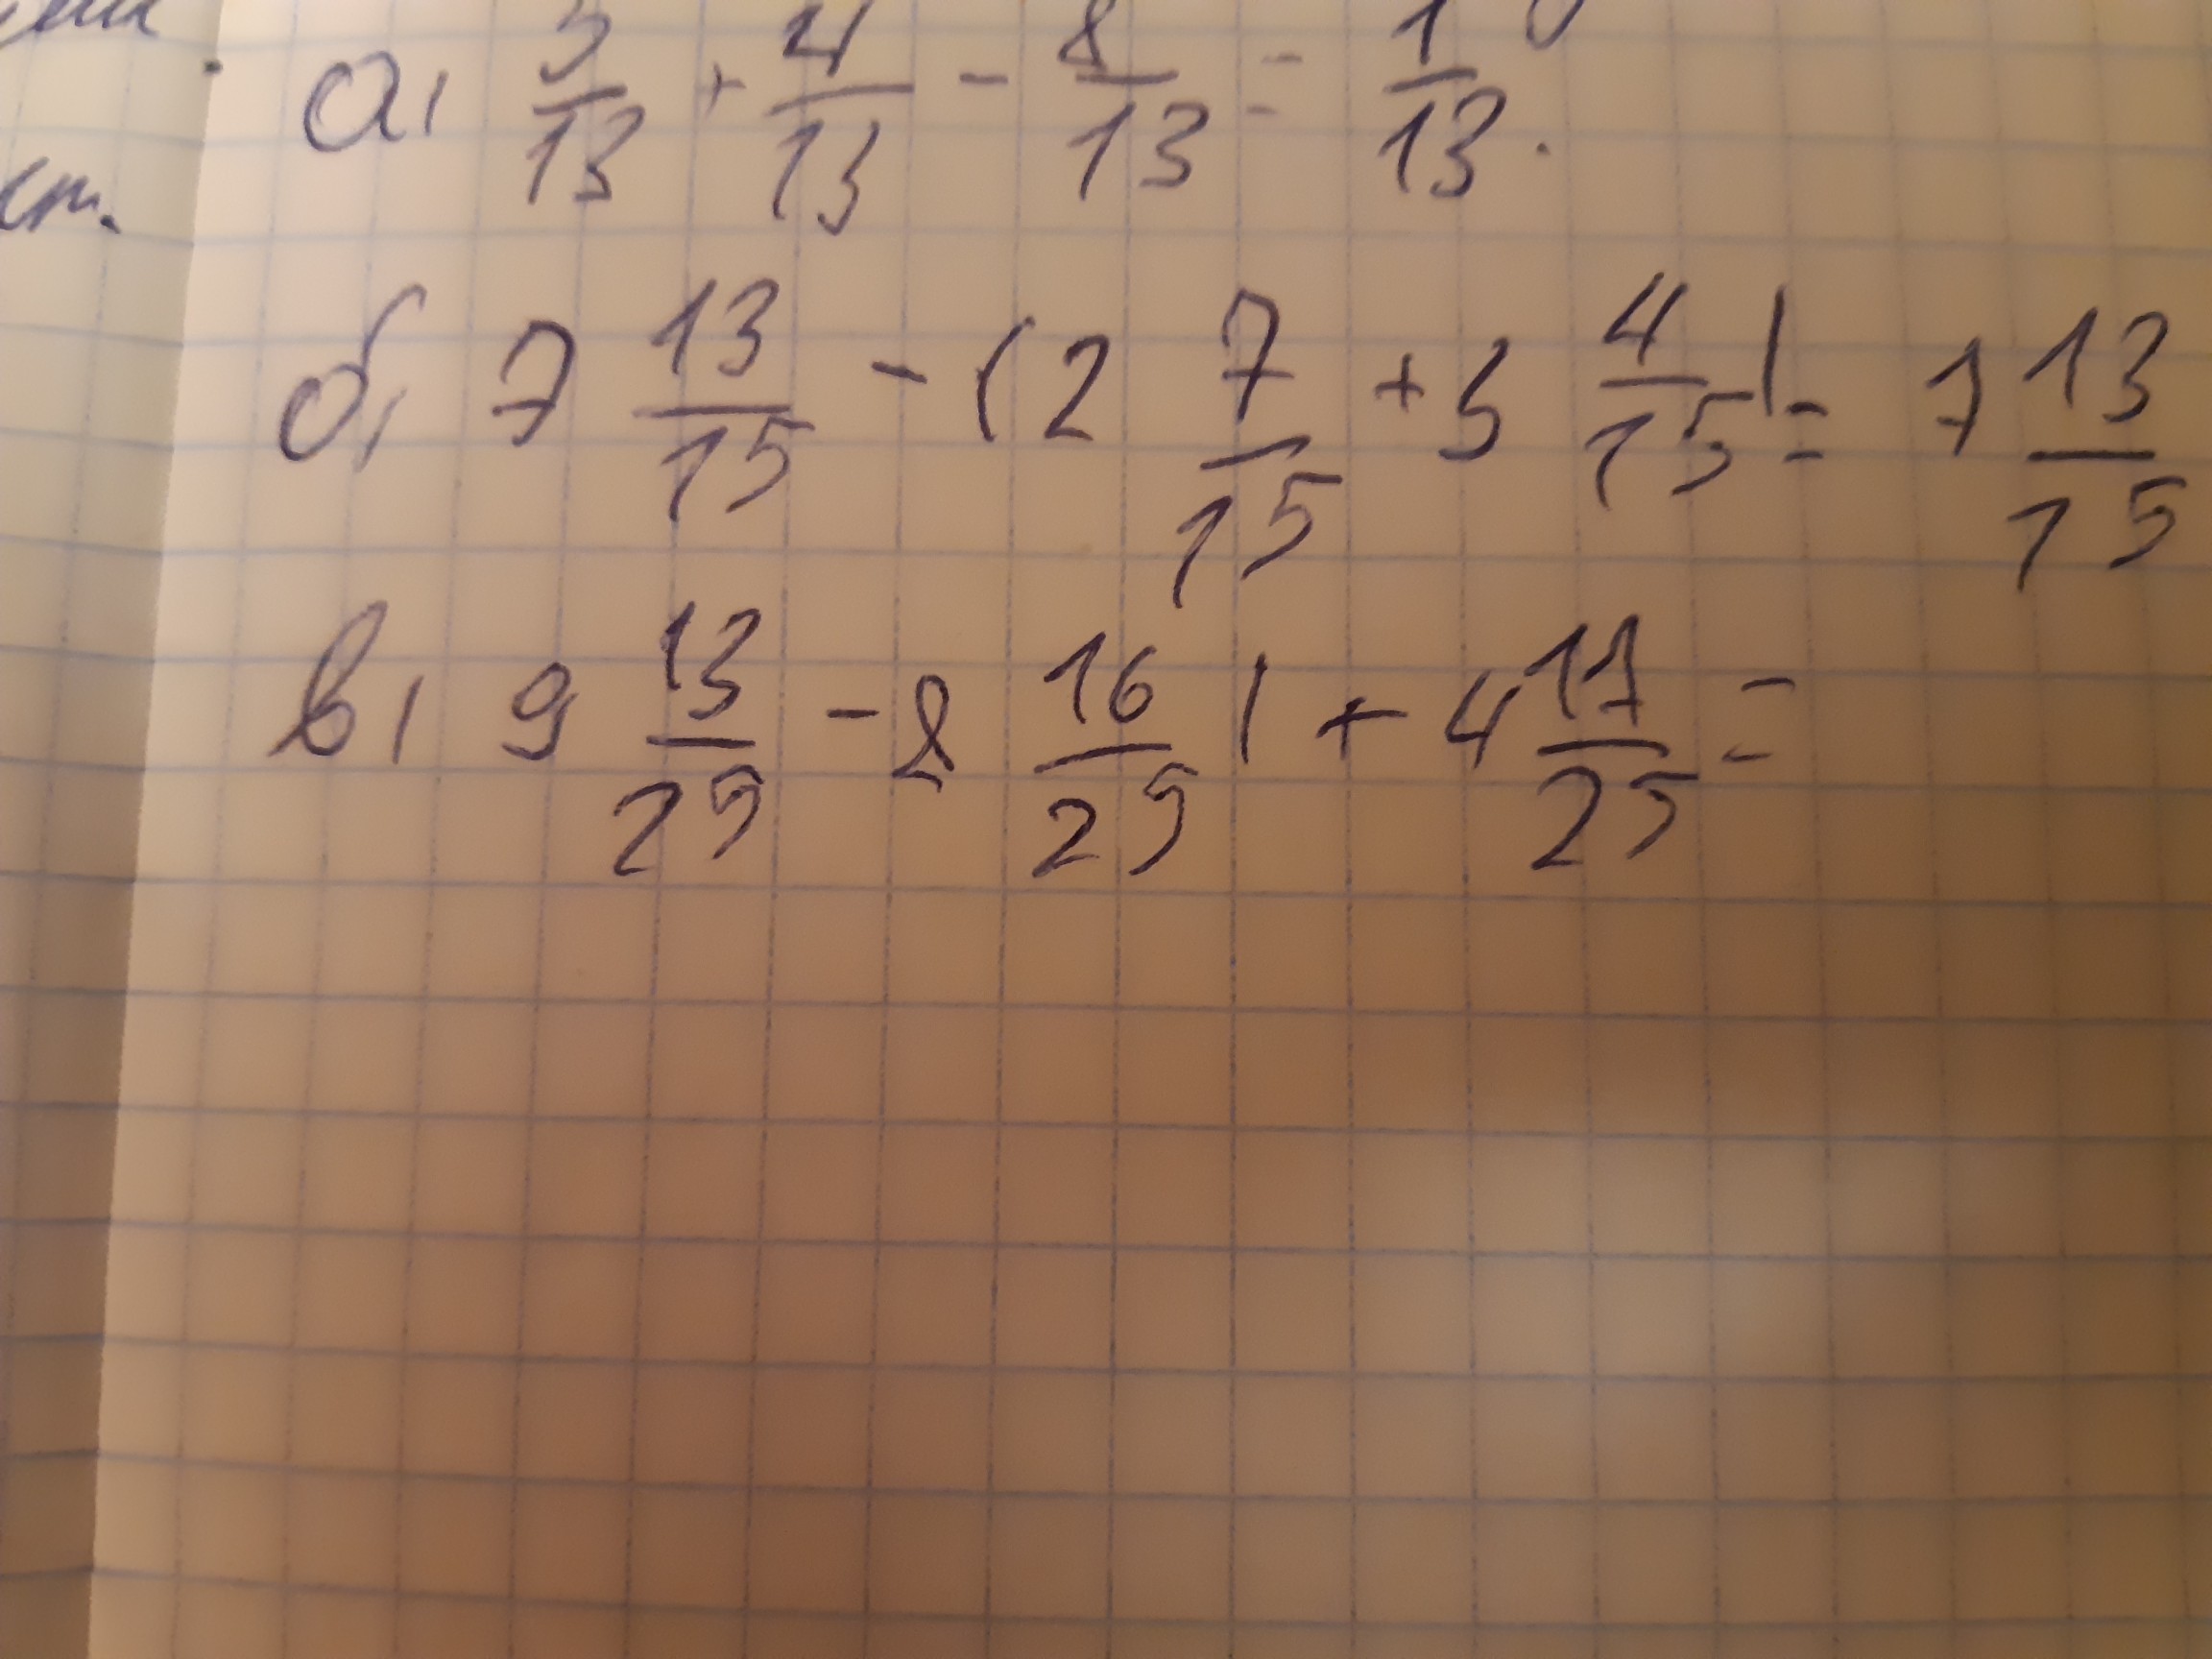 а) 5/13 + 4/13 - 8/13 = 1/13.
б) 7 13/15 - (2 7/15 + 3 4/15) = 7 13/15
в) 9 13/25 - 8 16/25) + 4 17/25 =